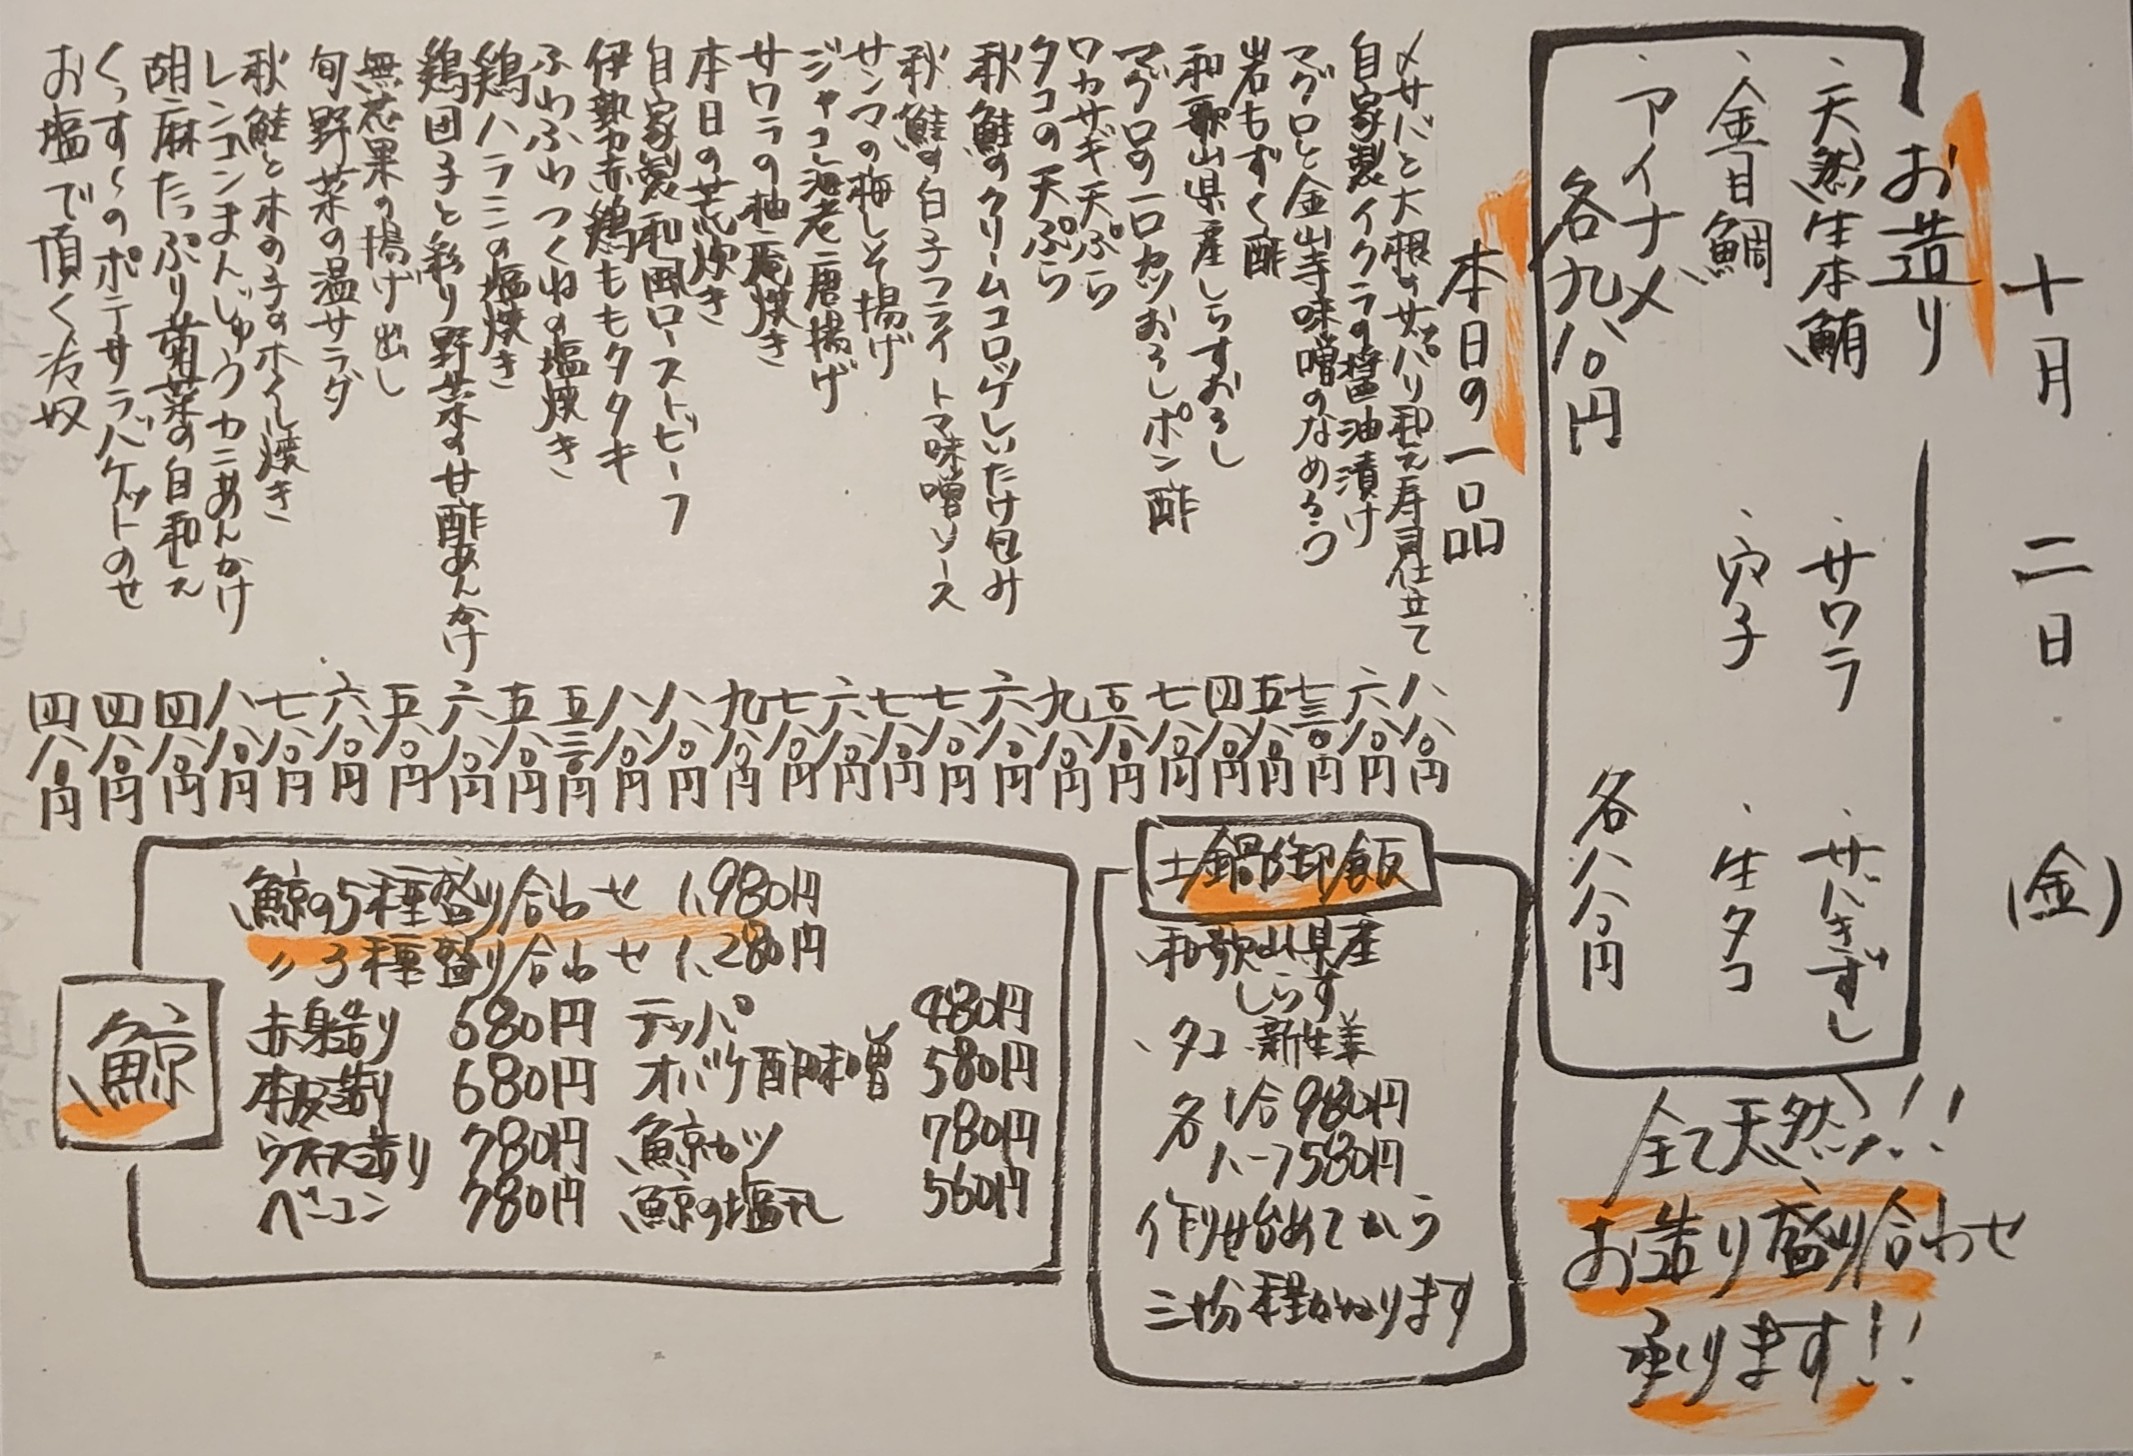 十月二日(金)
お造り
・天然生本鮪
・サワラ
・サバきずし
・金目鯛
・穴子
・生タコ
・アイナメ
各九八〇円
各八八〇円
全て天然!!
お造り盛り合わせ
承ります!!
本日の一品
〆サバと大根のサッパリ和え寿司仕立て 八八〇円
自家製イクラの醤油漬け 六八〇円
マグロと金山寺味噌のなめろう 七三〇円
岩もずく酢 五八〇円
和歌山県産しらすおろし 四八〇円
マグロの一口カツおろしポン酢 七八〇円
ワカサギ天ぷら 五八〇円
タコの天ぷら 九八〇円
秋鮭のクリームコロッケしいたけ包み 六八〇円
秋鮭の白子フライトマ味噌ソース 七八〇円
サンマの梅しそ揚げ 七八〇円
ジャコ海老唐揚げ 六八〇円
サワラの柚庵焼き 七八〇円
本日の荒炊き 九八〇円
自家製和風ローストビーフ 八八〇円
伊勢赤鶏ももタタキ 八八〇円
ふわふわつくねの塩焼き 五三〇円
鶏ハラミの塩焼き 五八〇円
鶏団子と彩り野菜の甘酢あんかけ 六八〇円
無花果の揚げ出し 五八〇円
旬野菜の温サラダ 六八〇円
秋鮭と木の子のホイル焼き 七八〇円
レンコンまんじゅうカニあんかけ 八八〇円
胡麻たっぷり菊菜の白和え 四八〇円
くっすぅのポテサラバケットのせ 四八〇円
お塩で頂く冷奴 四八〇円
土鍋御飯
・和歌山県産
しらす
・タコ・新生姜
各1合980円
ハーフ580円
作り始めてから
三十分程かかります
鯨
鯨の5種盛り合わせ 1,980円
〃3種盛り合わせ 1,280円
赤身造り 680円 テッパ 480円
本皮造り 680円 オバケ酢味噌 580円
ウネス造り 780円 鯨カツ 780円
ベーコン 780円 鯨の塩干し 560円